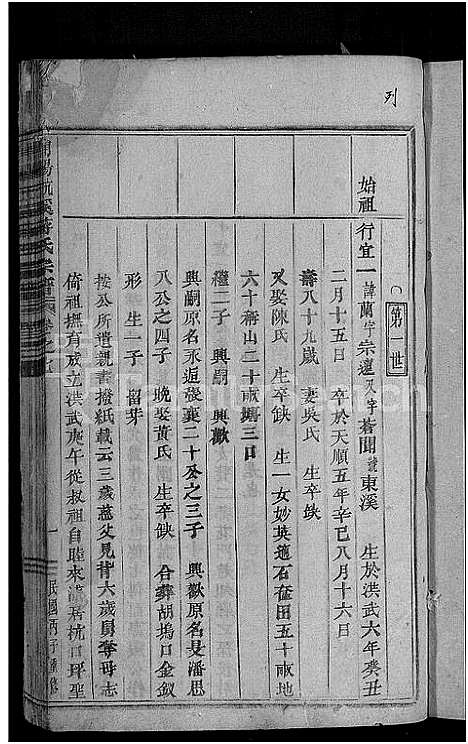 列
第一世
始祖 行宜一 諱蘭字宗遠又字若聞號東溪 生於洪武六年癸丑
二月十五日 卒於天順五年辛巳八月十六日
壽八十九歲 妻吳氏 生卒缺
又娶陳氏 生卒缺 生一女妙英適石 田五十畝地
六十 山二十畝塘三口
繼二子 興嗣 興歡
興嗣原名永 二十公之三子 興歡原名 潘思
八公之四子 晚娶黃氏 生卒缺 合葬胡塢口金釵
形 生一子 留芽
按公所遺親書撥紙載云三歲慈父見背六歲舅奪母志
倚祖撫育成立洪武庚午從叔祖自睦來 居杭口坪
氏宗譜 卷之
一
民國丙子